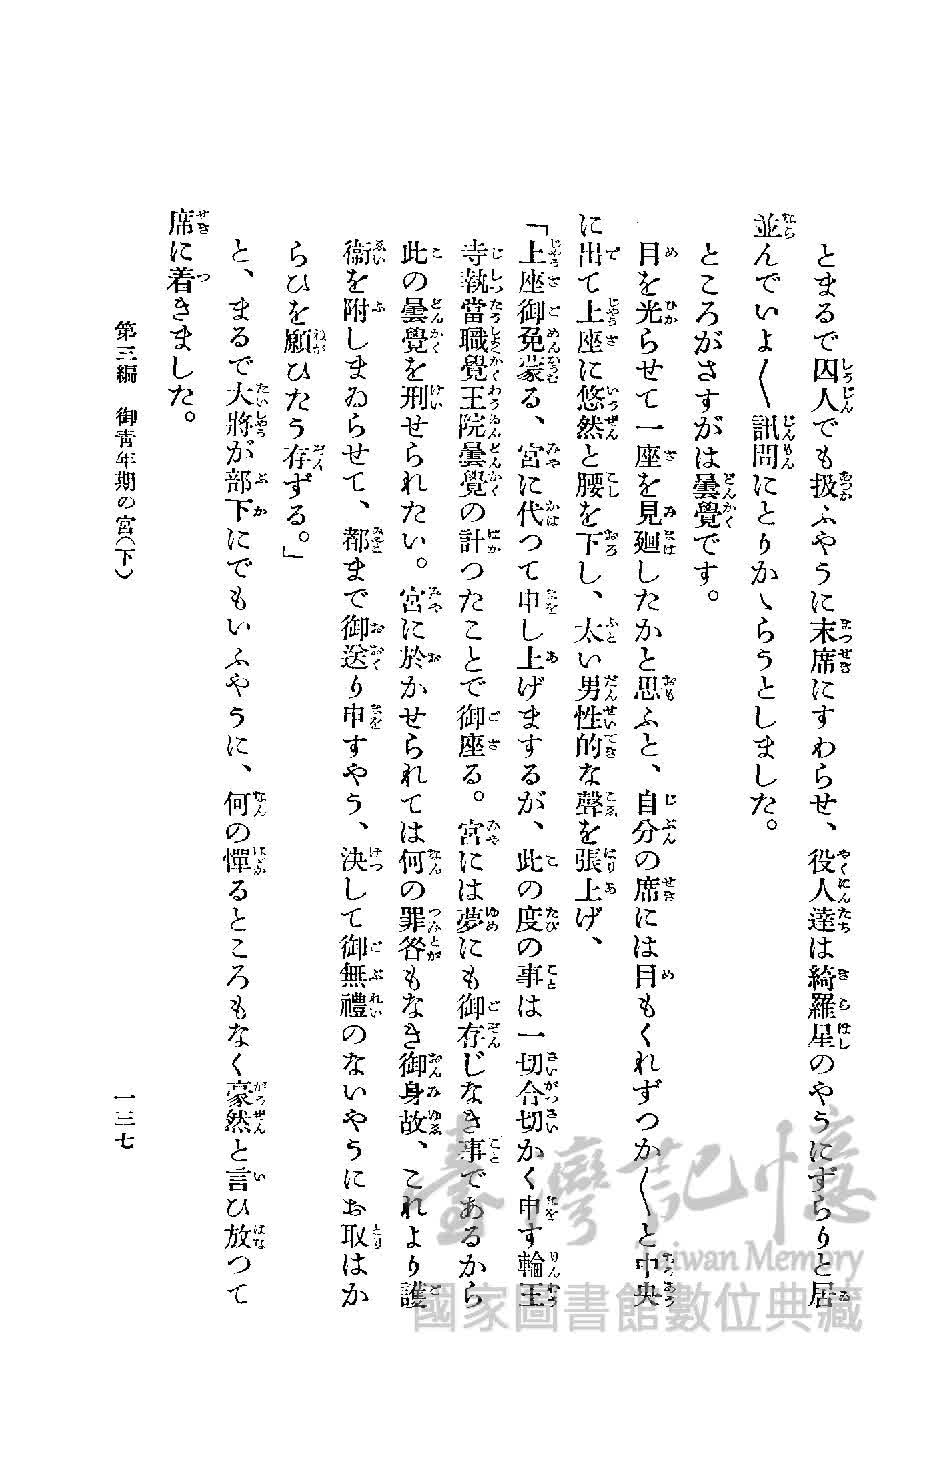 とまるで囚人でも扱ふやうに末席にすわらせ、役人達は綺羅星のやうにずらりと居
並んでいよ〱訊問にとりかゝらうとしました。
ところがさすがは曇覺です。
目を光らせて一座を見廻したかと思ふと、自分の席には目もくれずつか〱と中央
に出て上座に悠然と腰を下し、太い男性的な聲を張上げ、
「上座御免蒙る、宮に代つて申し上げまするが、此の度の事は一切合切かく申す輪王
寺執當職覺王院曇覺の計つたことで御座る。宮には夢にも御存じなき事であるから
此の曇覺を刑せられたい。宮に於かせられては何の罪咎もなき御身故、これより護
衞を附しまゐらせて、都まで御送り申すやう、決して御無禮のないやうにお取はか
らひを願ひたう存ずる。」
と、まるで大將が部下にでもいふやうに、何の憚るところもなく豪然と言ひ放つて
席に着きました。
第三編 御靑年期の宮(下)
一三七
臺灣記憶
Taiwan Memory
國家圖書館數位典藏